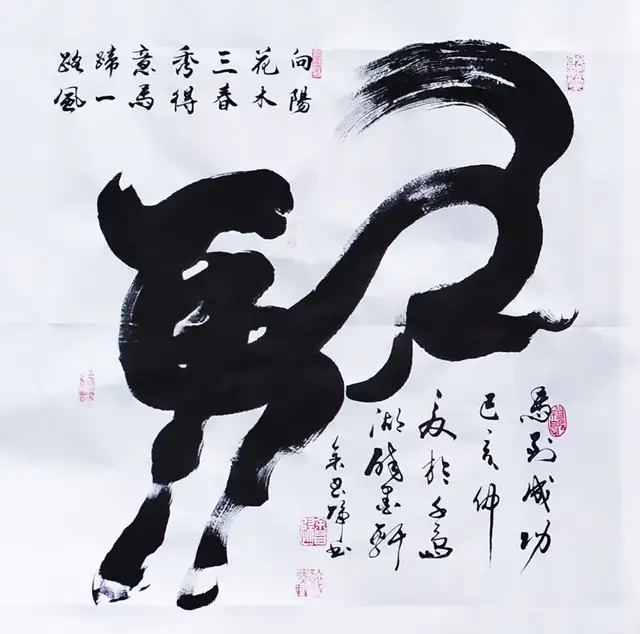 向陽
花木
三春
秀得
意馬
蹄一
路風
馬到成功
己亥仲
夏於千島
湖墨軒
书